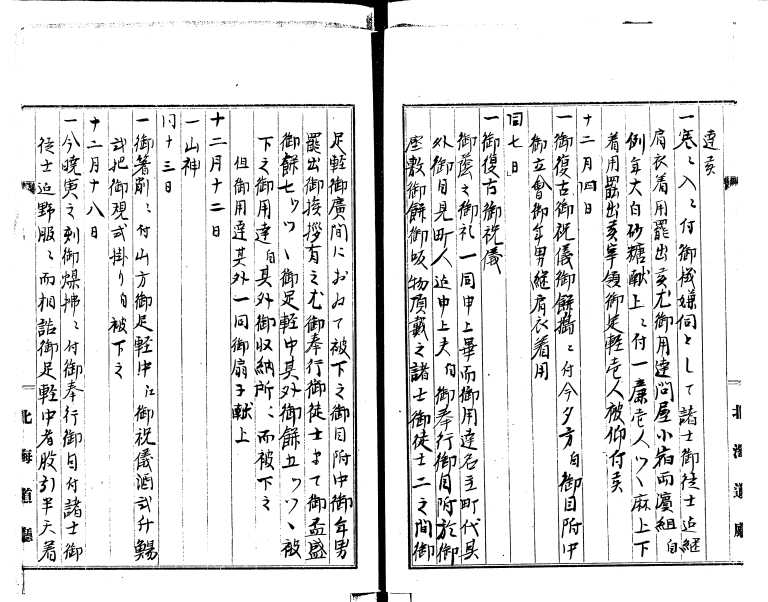 達候
一寒ニ入ニ付御機嫌伺として諸士御徒士迄継
肩衣着用罷出候尤御用達問屋小宿両濱組自
例年大白砂糖献上ニ付一簾壱人ツヽ麻上下
着用罷出候寧領御足軽壱人被仰付候
十二月四日
一御復古御祝儀御餅搗ニ付今夕方自御目附中
御立會御年男継肩衣着用
同七日
一御復古御祝儀
御蔭之御礼一同申上畢而御用達名主町代其
外御目見町人迄申上夫自御奉行御目附於御
座敷御餅御吸物頂戴之諸士御徒士二之間御
足軽御廣間において被下之御目附中御年男
罷出御挨拶有之尤御奉行御徒士まて御盃盛
御餅七ツツヽ御足軽中其外御餅五ツツヽ被
下之御用達自其外御収納所ニ而被下之
但御用達其外一同御扇子献上
十二月十二日
一山神
同十三日
一御箸削ニ付山方御足軽中江御祝儀酒弐升鰑
弐把御硯弐掛り自被下之
十二月十八日
一今暁寅之刻御煤拂ニ付御奉行御目付諸士御
徒士迄野服ニ而相詰御足軽中者股引半天着
北海道廳
北海道廳